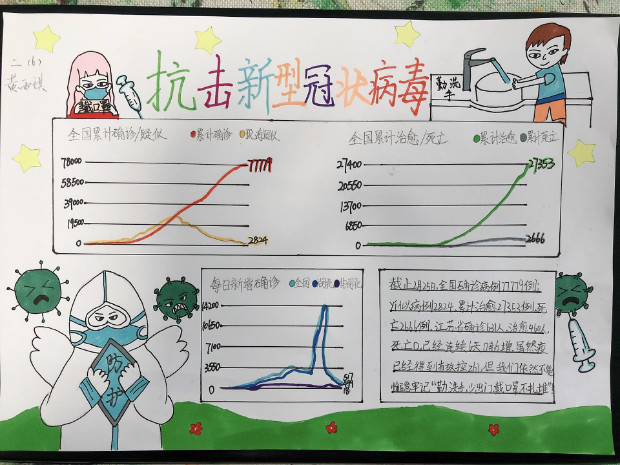 二（6）
抗击新型冠状病毒
戴口罩
勤洗手
全国累计确诊/疑似 累计确诊 现有疑似
78000
58500
39000
19500
0
77779
2824
全国累计治愈/死亡 累计治愈 累计死亡
27400
20550
13700
6850
0
27353
2666
每日新增确诊 全国 湖北 非湖北
14200
10650
7100
3550
0
517
499
18
防护
截止2月25日,全国确诊病例77779例,
疑似病例2824,累计治愈27353例,死
亡2666例,江苏省确诊631人,治愈
死亡0,已经连续 增,虽然疫
已经得到有效控 ,但我们依然不能
牢记"勤洗手,少出门,戴口罩,不扎堆"